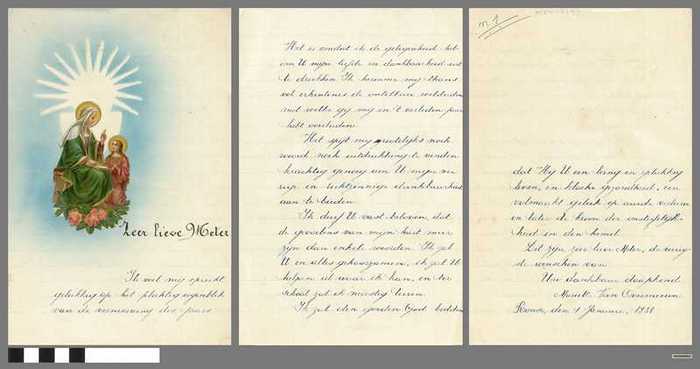 Zeer lieve Meter
Ik voel mij oprecht
gelukkig op het plechtig oogenblik
van de vernieuwing des jaars
Het is omdat ik de gelegenheid heb
om U mijn liefde en dankbaarheid uit
te drukken. Ik herinner mij thans
vol erkentenis de ontelbare weldaden
met welke gij mij in 't verleden jaar
hebt overladen.
Het spijt mij noch
woord noch uitdrukking te vinden
krachtig genoeg om U mijne
en dankbaarheid
aan te bieden.
Ik durf U vast beloven, dat
de gevoelens van mijn hart meer
zijn dan enkele woorden. Ik zal
U en alles gehoorzamen, ik zal U
helpen al waar ik kan, en ter
school zal ik vlijtig leeren.
Ik zal den goeden God bidden
dat Hij U een lang en gelukkig
leven, en blijde gezondheid, een
volmaakt geluk op aarde verleene
en later de kroon der onsterfelijk-
heid in den hemel.
Dat zijn, zeer lieve Meter, de
wenschen van
Uw dankbaar doopkind
Van
Ronse, den 1 Januari, 1938